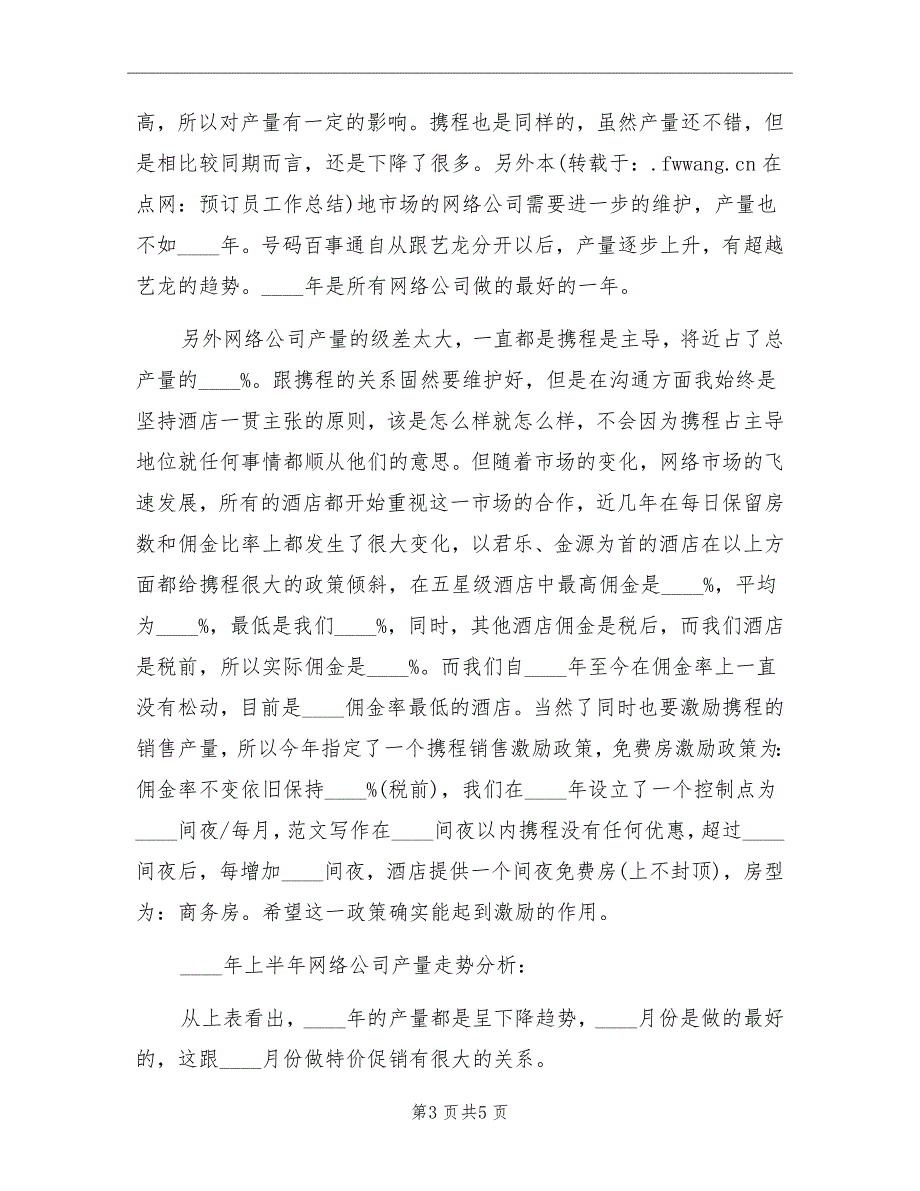 高，所以对产量有一定的影响。携程也是同样的，虽然产量还不错，但
是相比较同期而言，还是下降了很多。另外本(转载于：.fwwang.cn 在
点网：预订员工作总结)地市场的网络公司需要进一步的维护，产量也
不如____年。号码百事通自从跟艺龙分开以后，产量逐步上升，有超越
艺龙的趋势。____年是所有网络公司做的最好的一年。
另外网络公司产量的级差太大，一直都是携程是主导，将近占了总
产量的____%。跟携程的关系固然要维护好，但是在沟通方面我始终是
坚持酒店一贯主张的原则，该是怎么样就怎么样，不会因为携程占主导
地位就任何事情都顺从他们的意思。但随着市场的变化，网络市场的飞
速发展，所有的酒店都开始重视这一市场的合作，近几年在每日保留房
数和佣金比率上都发生了很大变化，以君乐、金源为首的酒店在以上方
面都给携程很大的政策倾斜，在五星级酒店中最高佣金是____%，平均
为____%，最低是我们____%，同时，其他酒店佣金是税后，而我们酒店
是税前，所以实际佣金是____%。而我们自____年至今在佣金率上一直
没有松动，目前是____佣金率最低的酒店。当然了同时也要激励携程的
销售产量，所以今年指定了一个携程销售激励政策，免费房激励政策为：
佣金率不变依旧保持____%(税前)，我们在____年设立了一个控制点为
____间夜/每月，范文写作在____间夜以内携程没有任何优惠，超过____
间夜后，每增加____间夜，酒店提供一个间夜免费房(上不封顶)，房型
为：商务房。希望这一政策确实能起到激励的作用。
____年上半年网络公司产量走势分析：
从上表看出，____年的产量都是呈下降趋势，____月份是做的最好
的，这跟____月份做特价促销有很大的关系。
第3 页共5 页